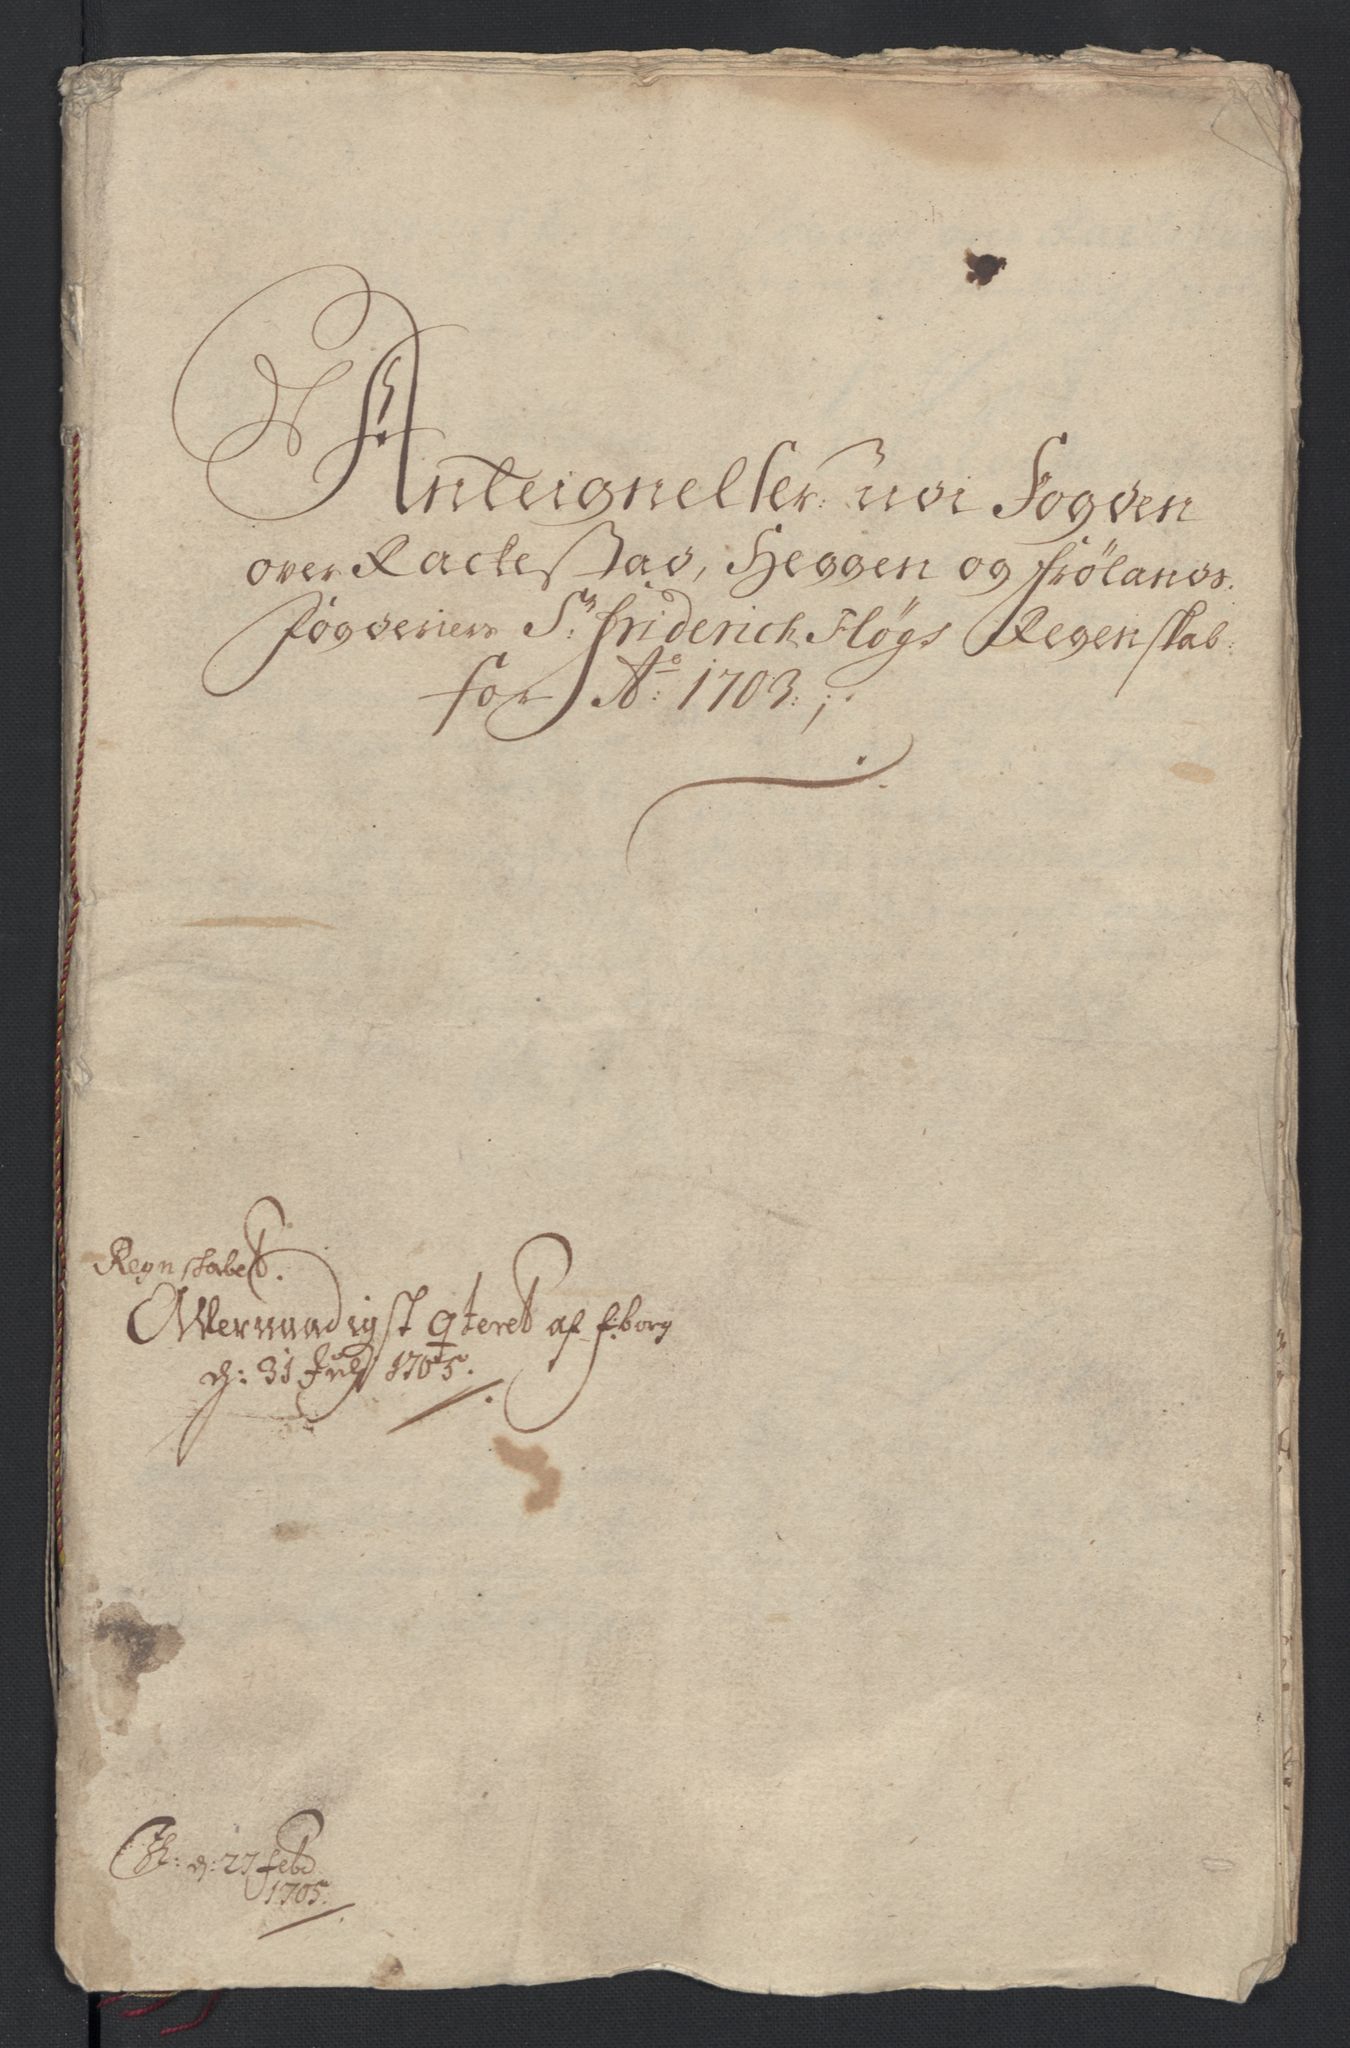 Anteignelser udi Fogden
over Rackestad, Heggen og Frölands:
Fogderiers Sr: Friderich Fløgs Regenskab:
for Ao: 1703:
Regnskabet.
Allernaadigst qteret af f:borg
d: 31 July 1705.
d: 27 febr
1705.